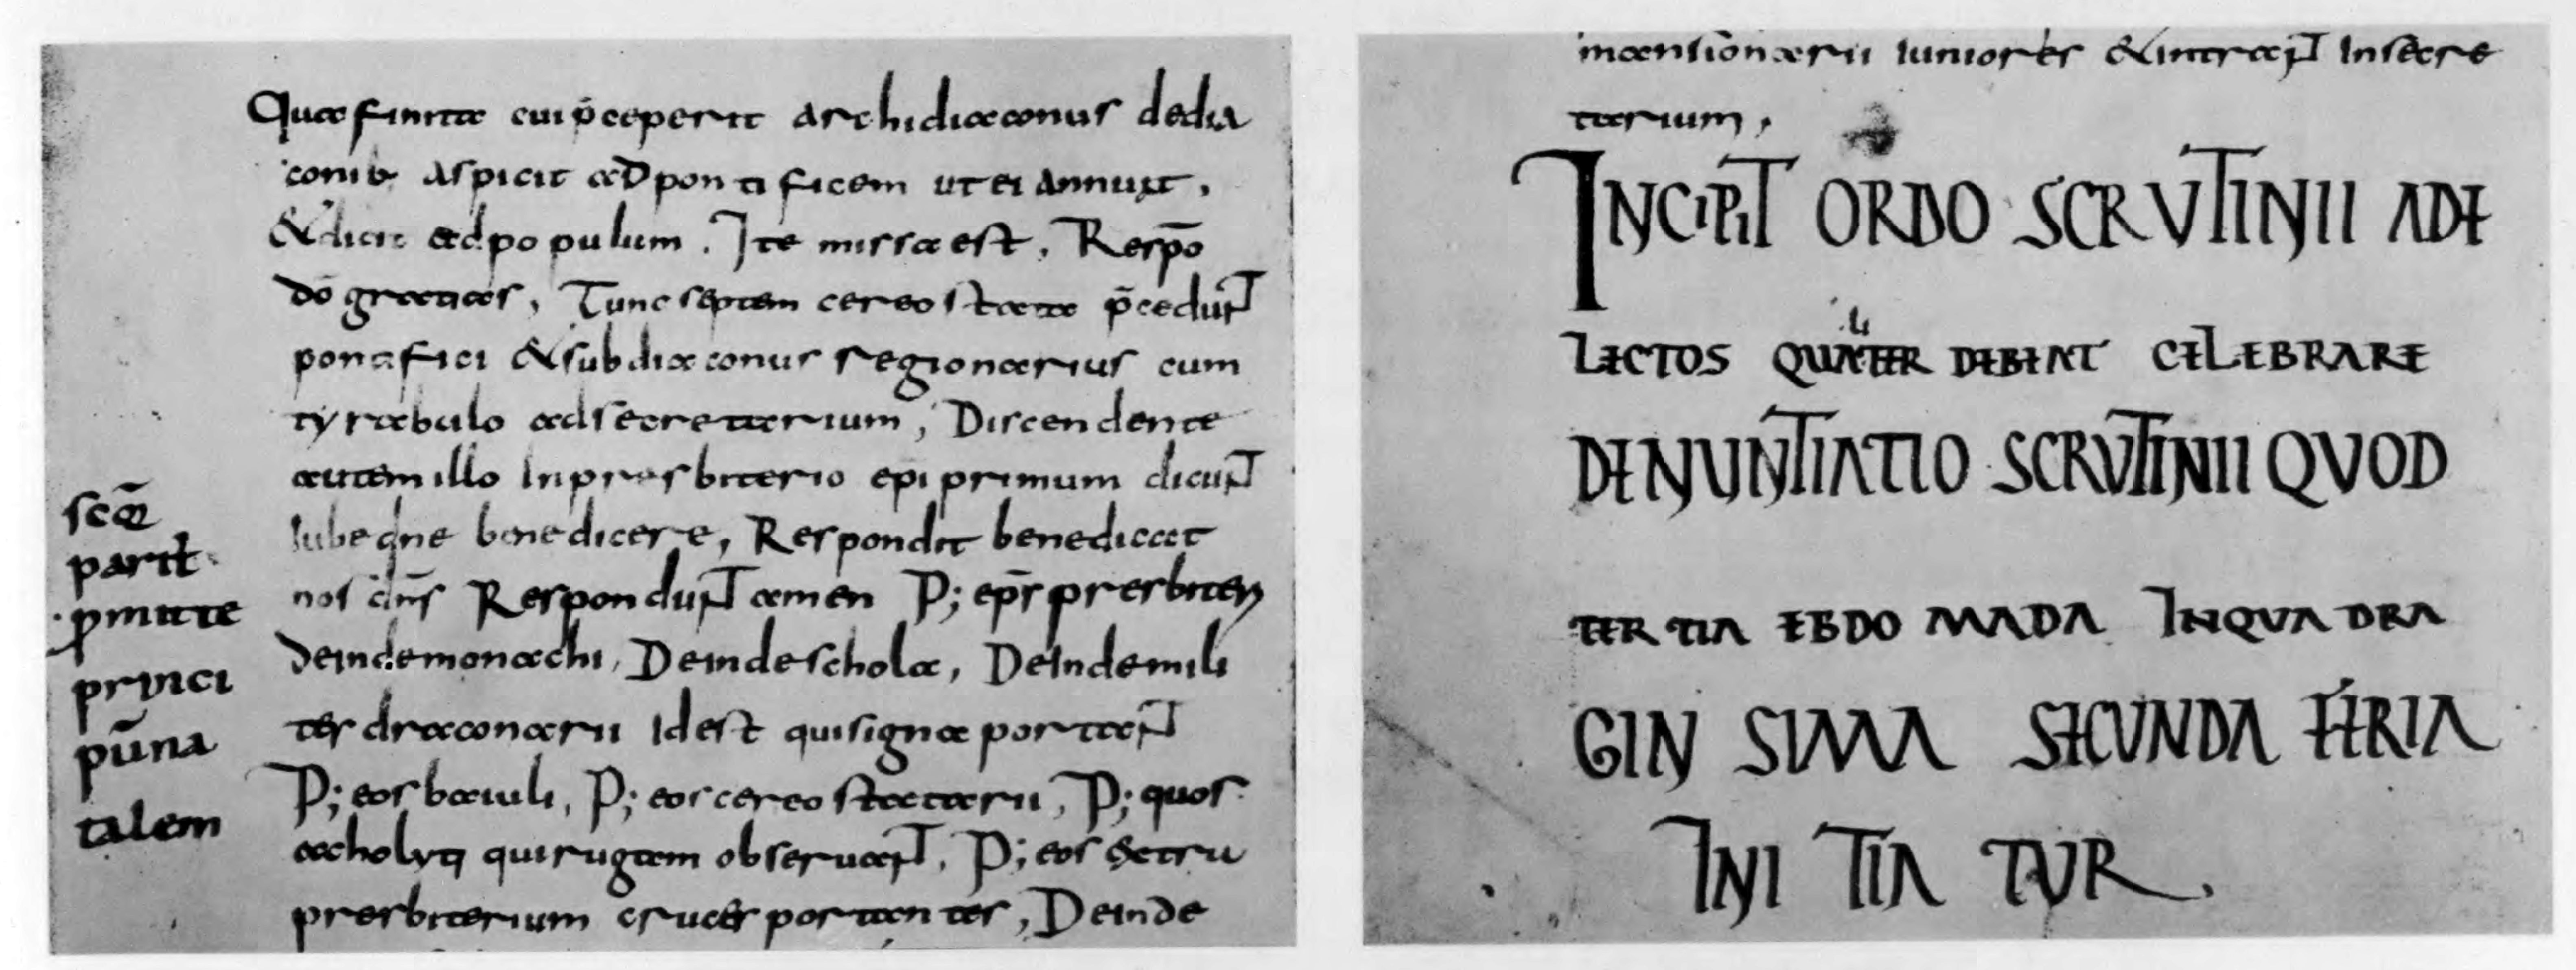 Quae finita cui p̄ceperit archidiaconus dedia
conib· aspicit ad pontificem ut ei annuat,
& dicit ad populum. Ite missa est. Resp̄o
dō gratias, Tunc septem cereostata p̄cedunt
pontifici & subdiaconus regionarius cum
tyrabulo ad secretarium, Discendente
autem illo In presbiterio ep̄i primum dicunt
Iube dn̄e benedicere, Respondit benedicat
nos dn̄s Respondunt amen P; ep̄s presbiteri
deinde monachi, Deinde schola, Deinde mili
tes draconarii Id est qui signa portant
P; eos baiuli, P; eos cereostatarii, P; quos
acholyti qui rugam obseruant, P; eos extru
presbiterium cruces portantes, Deinde
scq̄
partt
p̱mitte
princi
pūna
talem
mansionarii Iuniores & intrant In secre
tarium,
INCIPIT ORDO SCRUTINII ADE
LECTOS QUALITER DEBEAT CELEBRARE
DENUNTIATIO SCRUTINII QUOD
TERTIA EBDOMADA INQUADRA
GINSIMA SECUNDA FERIA
INITIATUR.